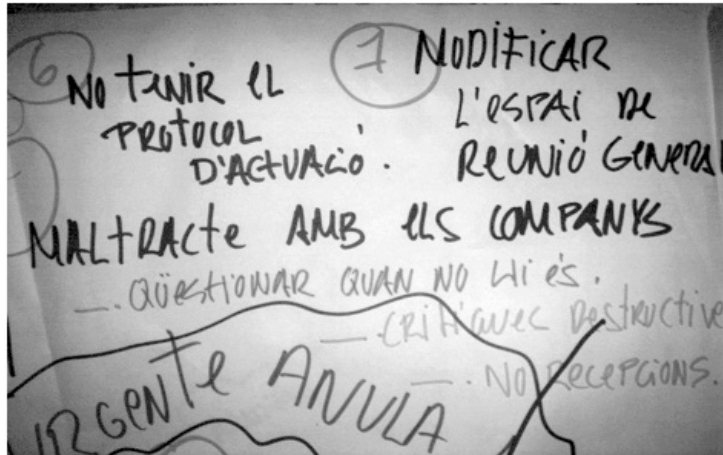 6
NO tENIR EL
PROTOCOL
D'ACTUACIÓ.
1 MODIFICAR
L'ESPAI DE
REUNIÓ GENERAL
MALtRACTE AMB ELS COMPANYS
—. QÜESTIONAR QUAN NO HI ÉS.
— CRITIQUES DESTRUCTIVE
—. NO RECEPCIONS.
URGENTE ANULA